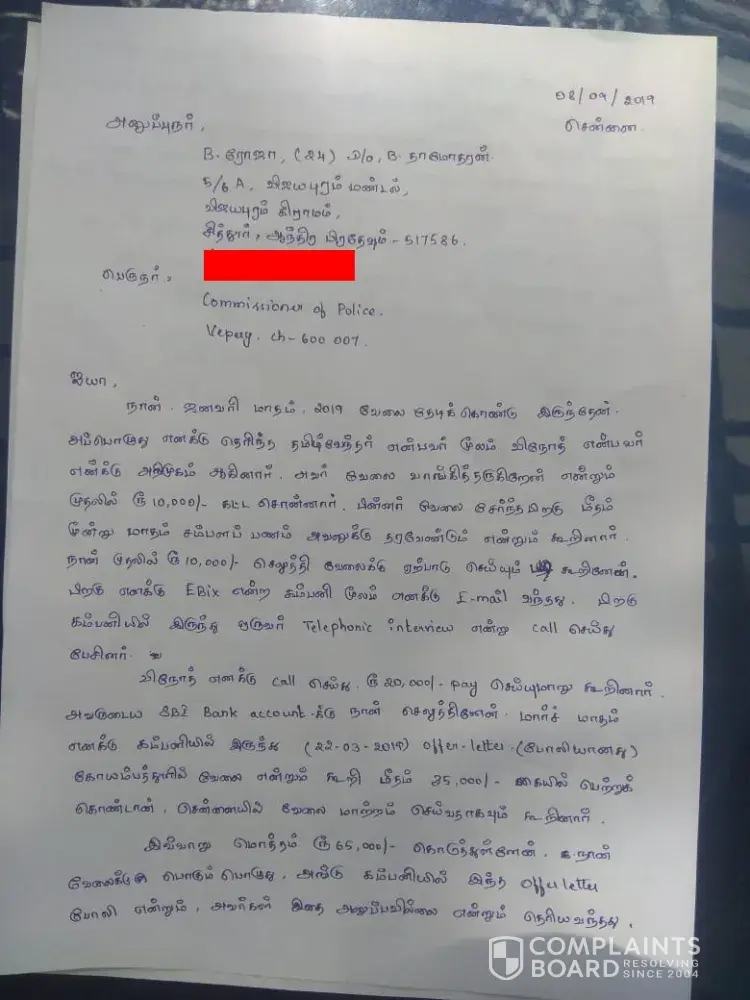 08/09/2019
அனுப்புநர்,
சென்னை.
B. ரோஜா, (24) D/o, B. தாமோதரன்.
5/6 A, விஜயபுரம் மண்டல்,
விஜயபுரம் கிராமம்,
சித்தூர், ஆந்திர பிரதேஷம் - 517586.
பெருநர்,
Commissioner of Police.
Vepery. ch-600 007.
ஐயா,
நான். ஜனவரி மாதம், 2019 வேலை தேடிக்கொண்டு இருந்தேன்.
அப்பொழுது எனக்கு தெரிந்த தமிழ்வேந்தர் என்பவர் மூலம் வினோத் என்பவர்
எனக்கு அறிமுகம் ஆகினார். அவர் வேலை வாங்கித்தருகிறேன் என்றும்
முதலில் ரூ 10,000/- கட்ட சொன்னார். பின்னர் வேலை சேர்ந்தபிறகு மீதம்
மூன்று மாதம் சம்பளப் பணம் அவனுக்கு தரவேண்டும் என்றும் கூறினார்.
நான் முதலில் ரூ 10,000/- செலுத்தி வேலைக்கு ஏற்பாடு செய்யும் கூறினேன்.
பிறகு எனக்கு EBix என்ற கம்பனி மூலம் எனக்கு E-mail வந்தது. பிறகு
கம்பனியில் இருந்து ஒருவர் Telephonic interview என்று call செய்து
பேசினர்.
வினோத் எனக்கு call செய்து ரூ 20,000/- pay செய்யுமாறு கூறினார்.
அவருடைய SBI Bank account-க்கு நான் செலுத்தினேன். மார்ச் மாதம்
எனக்கு கம்பனியில் இருந்து (22-03-2019) offer-letter (போலியானது)
கோயம்பத்தூரில் வேலை என்றும் கூறி மீதம் 35,000/- கையில் பெற்றுக்
கொண்டான். சென்னையில் வேலை மாற்றம் செய்வதாகவும் கூறினார்.
இவ்வாறு மொத்தம் ரூ 65,000/- கொடுத்துள்ளேன். நான்
வேலைக்கு போகும்பொழுது, அங்கு கம்பனியில் இந்த offer letter
போலி என்றும், அவர்கள் இதை அனுப்பவில்லை என்றும் தெரியவந்தது.
COMPLAINTS
BOARD RESOLVING
SINCE 2004